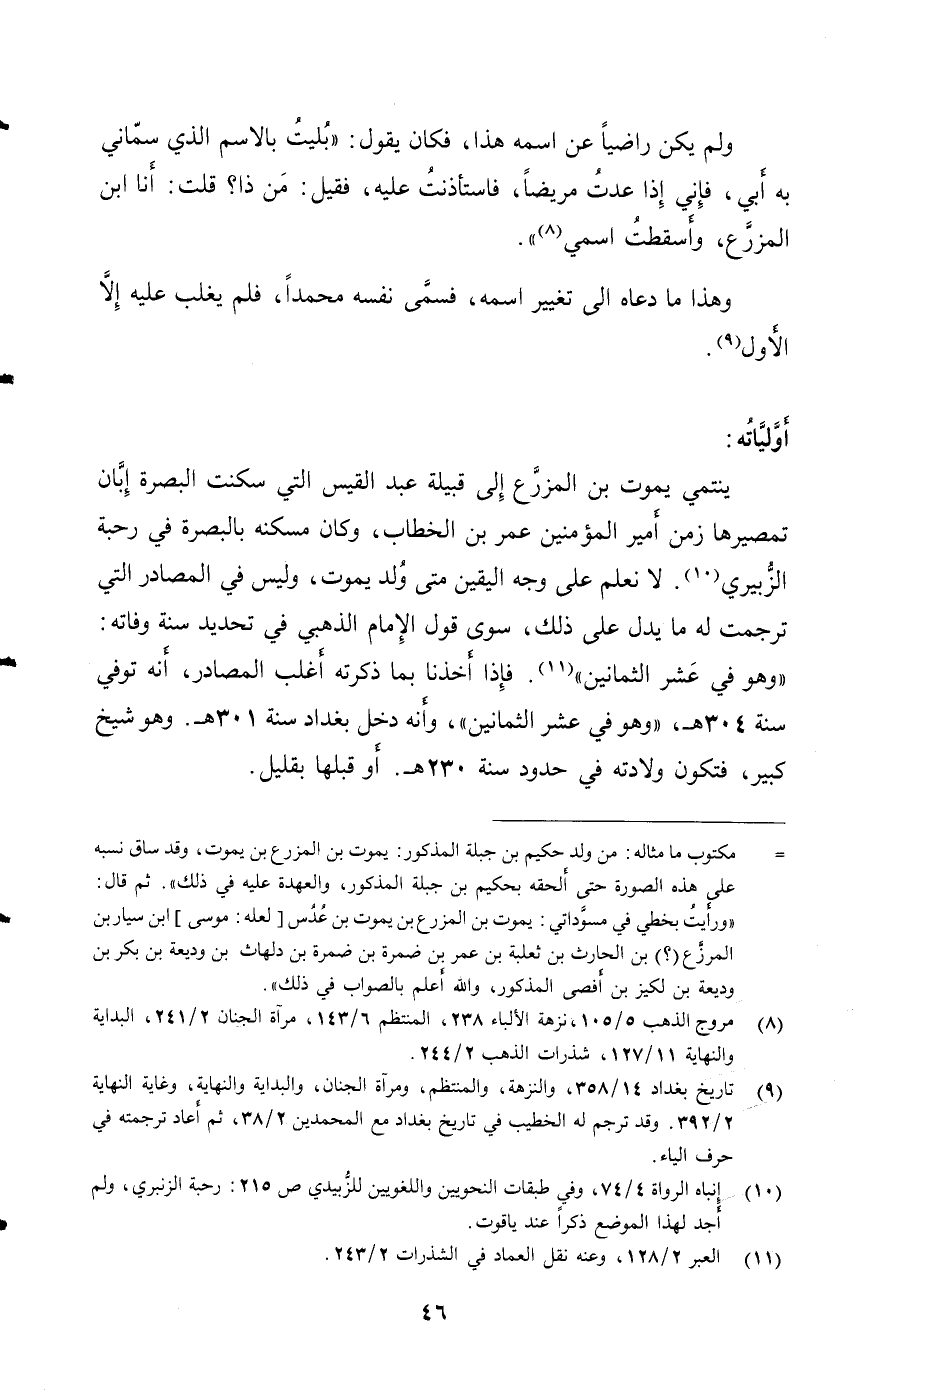 ولم يكن راضياً عن اسمه هذا، فكان يقول: «بُليتُ بالاسم الذي سمّاني
به أَبي، فإِني إِذا عدتُ مريضاً، فاستأذنتُ عليه، فقيل: مَن ذا؟ قلت: أَنا ابن
المزرَّع، وأَسقطتُ اسمي(٨)».
وهذا ما دعاه الى تغيير اسمه، فسمَّى نفسه محمداً، فلم يغلب عليه إِلَّا
الأَول(٩).
أَوَّليَّاتُه:
ينتمي يموت بن المزرَّع إِلى قبيلة عبد القيس التي سكنت البصرة إِبَّان
تمصيرها زمن أَمير المؤمنين عمر بن الخطاب، وكان مسكنه بالبصرة في رحبة
الزُّبيري(١٠). لا نعلم على وجه اليقين متى وُلد يموت، وليس في المصادر التي
ترجمت له ما يدل على ذلك، سوى قول الإِمام الذهبي في تحديد سنة وفاته:
«وهو في عَشر الثمانين»(١١). فإِذا أَخذنا بما ذكرته أَغلب المصادر، أَنه توفي
سنة ٣٠٤هـ، «وهو في عشر الثمانين»، وأَنه دخل بغداد سنة ٣٠١هـ. وهو شيخ
كبير، فتكون ولادته في حدود سنة ٢٣٠هـ. أَو قبلها بقليل.
= مكتوب ما مثاله: من ولد حكيم بن جبلة المذكور: يموت بن المزرع بن يموت، وقد ساق نسبه
على هذه الصورة حتى أَلحقه بحكيم بن جبلة المذكور، والعهدة عليه في ذلك». ثم قال:
«ورأَيتُ بخطي في مسوَّداتي: يموت بن المزرع بن يموت بن عُدُس [لعله: موسى] ابن سيار بن
المرزَّع (؟) بن الحارث بن ثعلبة بن عمر بن ضمرة بن ضمرة بن دلهاث بن وديعة بن بكر بن
وديعة بن لكيز بن أَفصى المذكور، والله أَعلم بالصواب في ذلك».
(٨) مروج الذهب ١٠٥/٥، نزهة الألباء ٢٣٨، المنتظم ١٤٣/٦، مرآة الجنان ٢٤١/٢، البداية
والنهاية ١٢٧/١١، شذرات الذهب ٢٤٤/٢.
(٩) تاريخ بغداد ٣٥٨/١٤، والنزهة، والمنتظم، ومرآة الجنان، والبداية والنهاية، وغاية النهاية
٣٩٢/٢. وقد ترجم له الخطيب في تاريخ بغداد مع المحمدين ٣٨/٢، ثم أَعاد ترجمته في
حرف الياء.
(١٠) إِنباه الرواة ٧٤/٤، وفي طبقات النحويين واللغويين للزُّبيدي ص ٢١٥: رحبة الزنبري، ولم
أَجد لهذا الموضع ذكراً عند ياقوت.
(١١) العبر ١٢٨/٢، وعنه نقل العماد في الشذرات ٢٤٣/٢.
٤٦